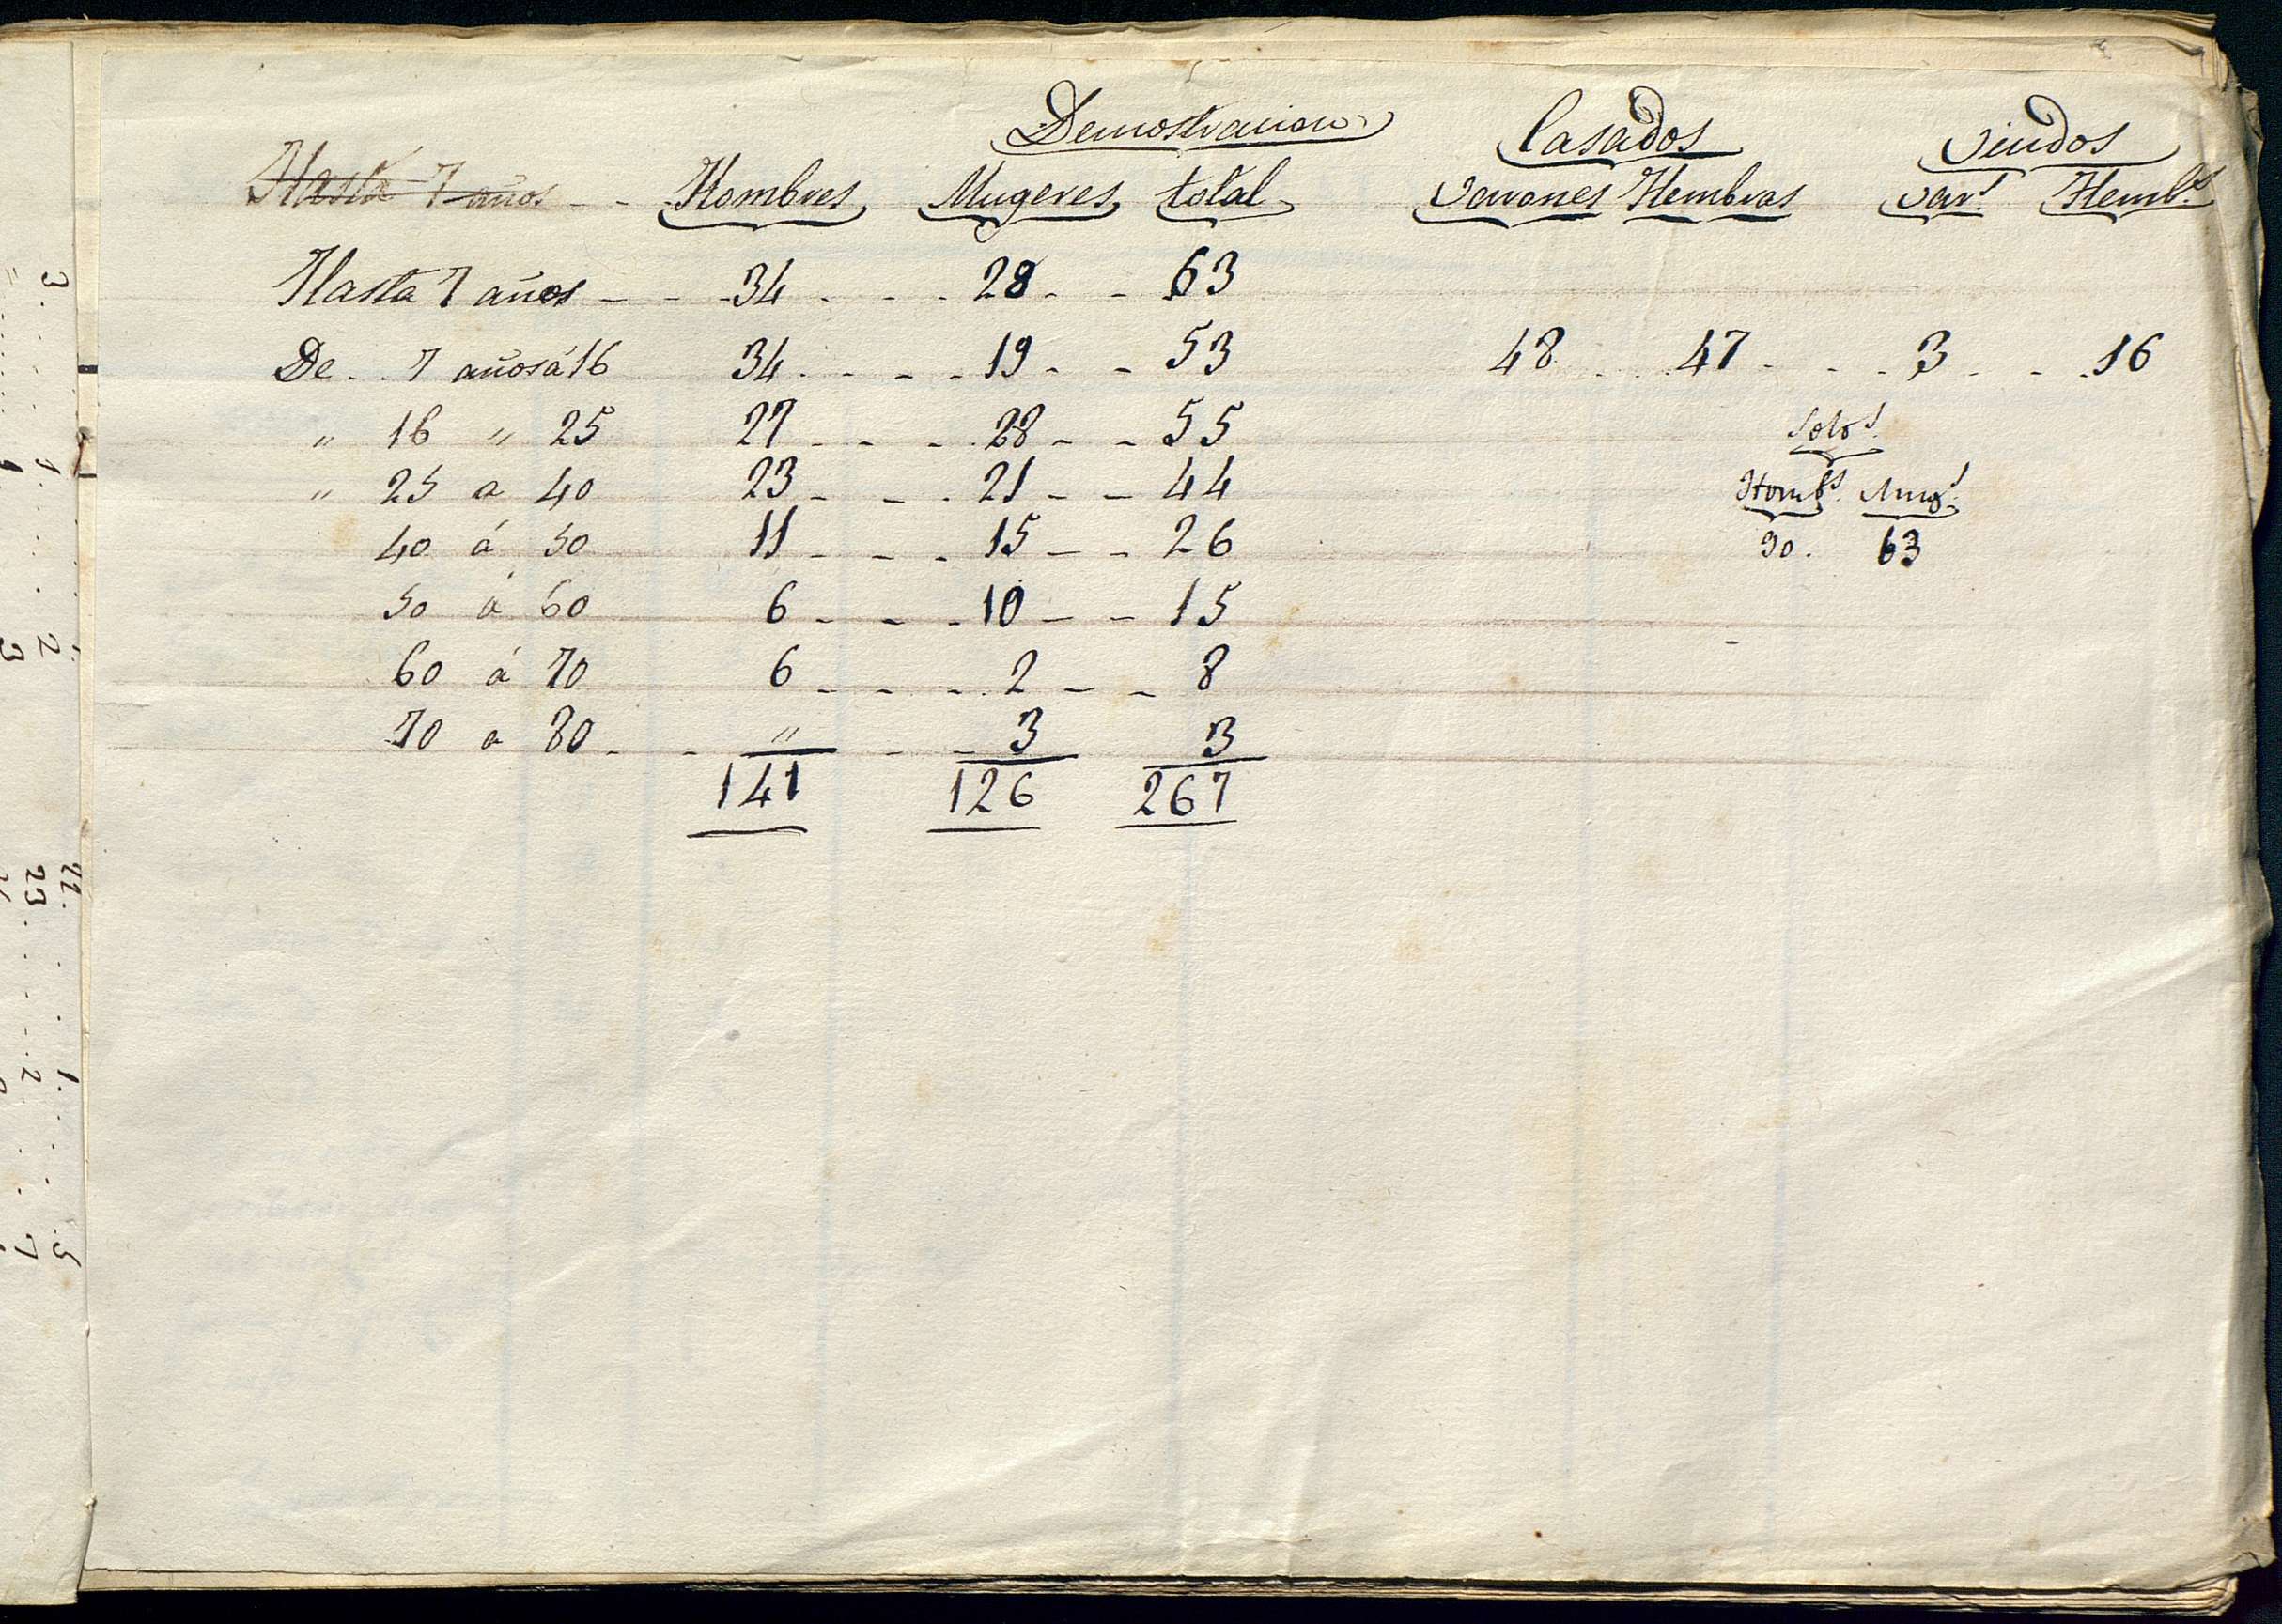 Demostracion Casados Viudos
Hasta 7 años - - Hombres Mugeres total Varones Hembras Var.s Hemb.s
Hasta 7 años - - - 34 . . . 28 - - 63
De . . 7 años á 16 34 . - - - 19 - - 53 48 . . . 47 - . - . 3 - - . 16
" 16 " 25 27 - - - 28 - - 55 Solo.s
" 25 a 40 23 - - . 21 - - 44 Homb.s Mug.s
40 á 50 11 - - - 15 - - 26 90. 63
50 á 60 6 - - - 10 - - 15
60 á 70 6 - - - . 2 - - 8
70 a 80 - - " - - 3 3
141 126 267